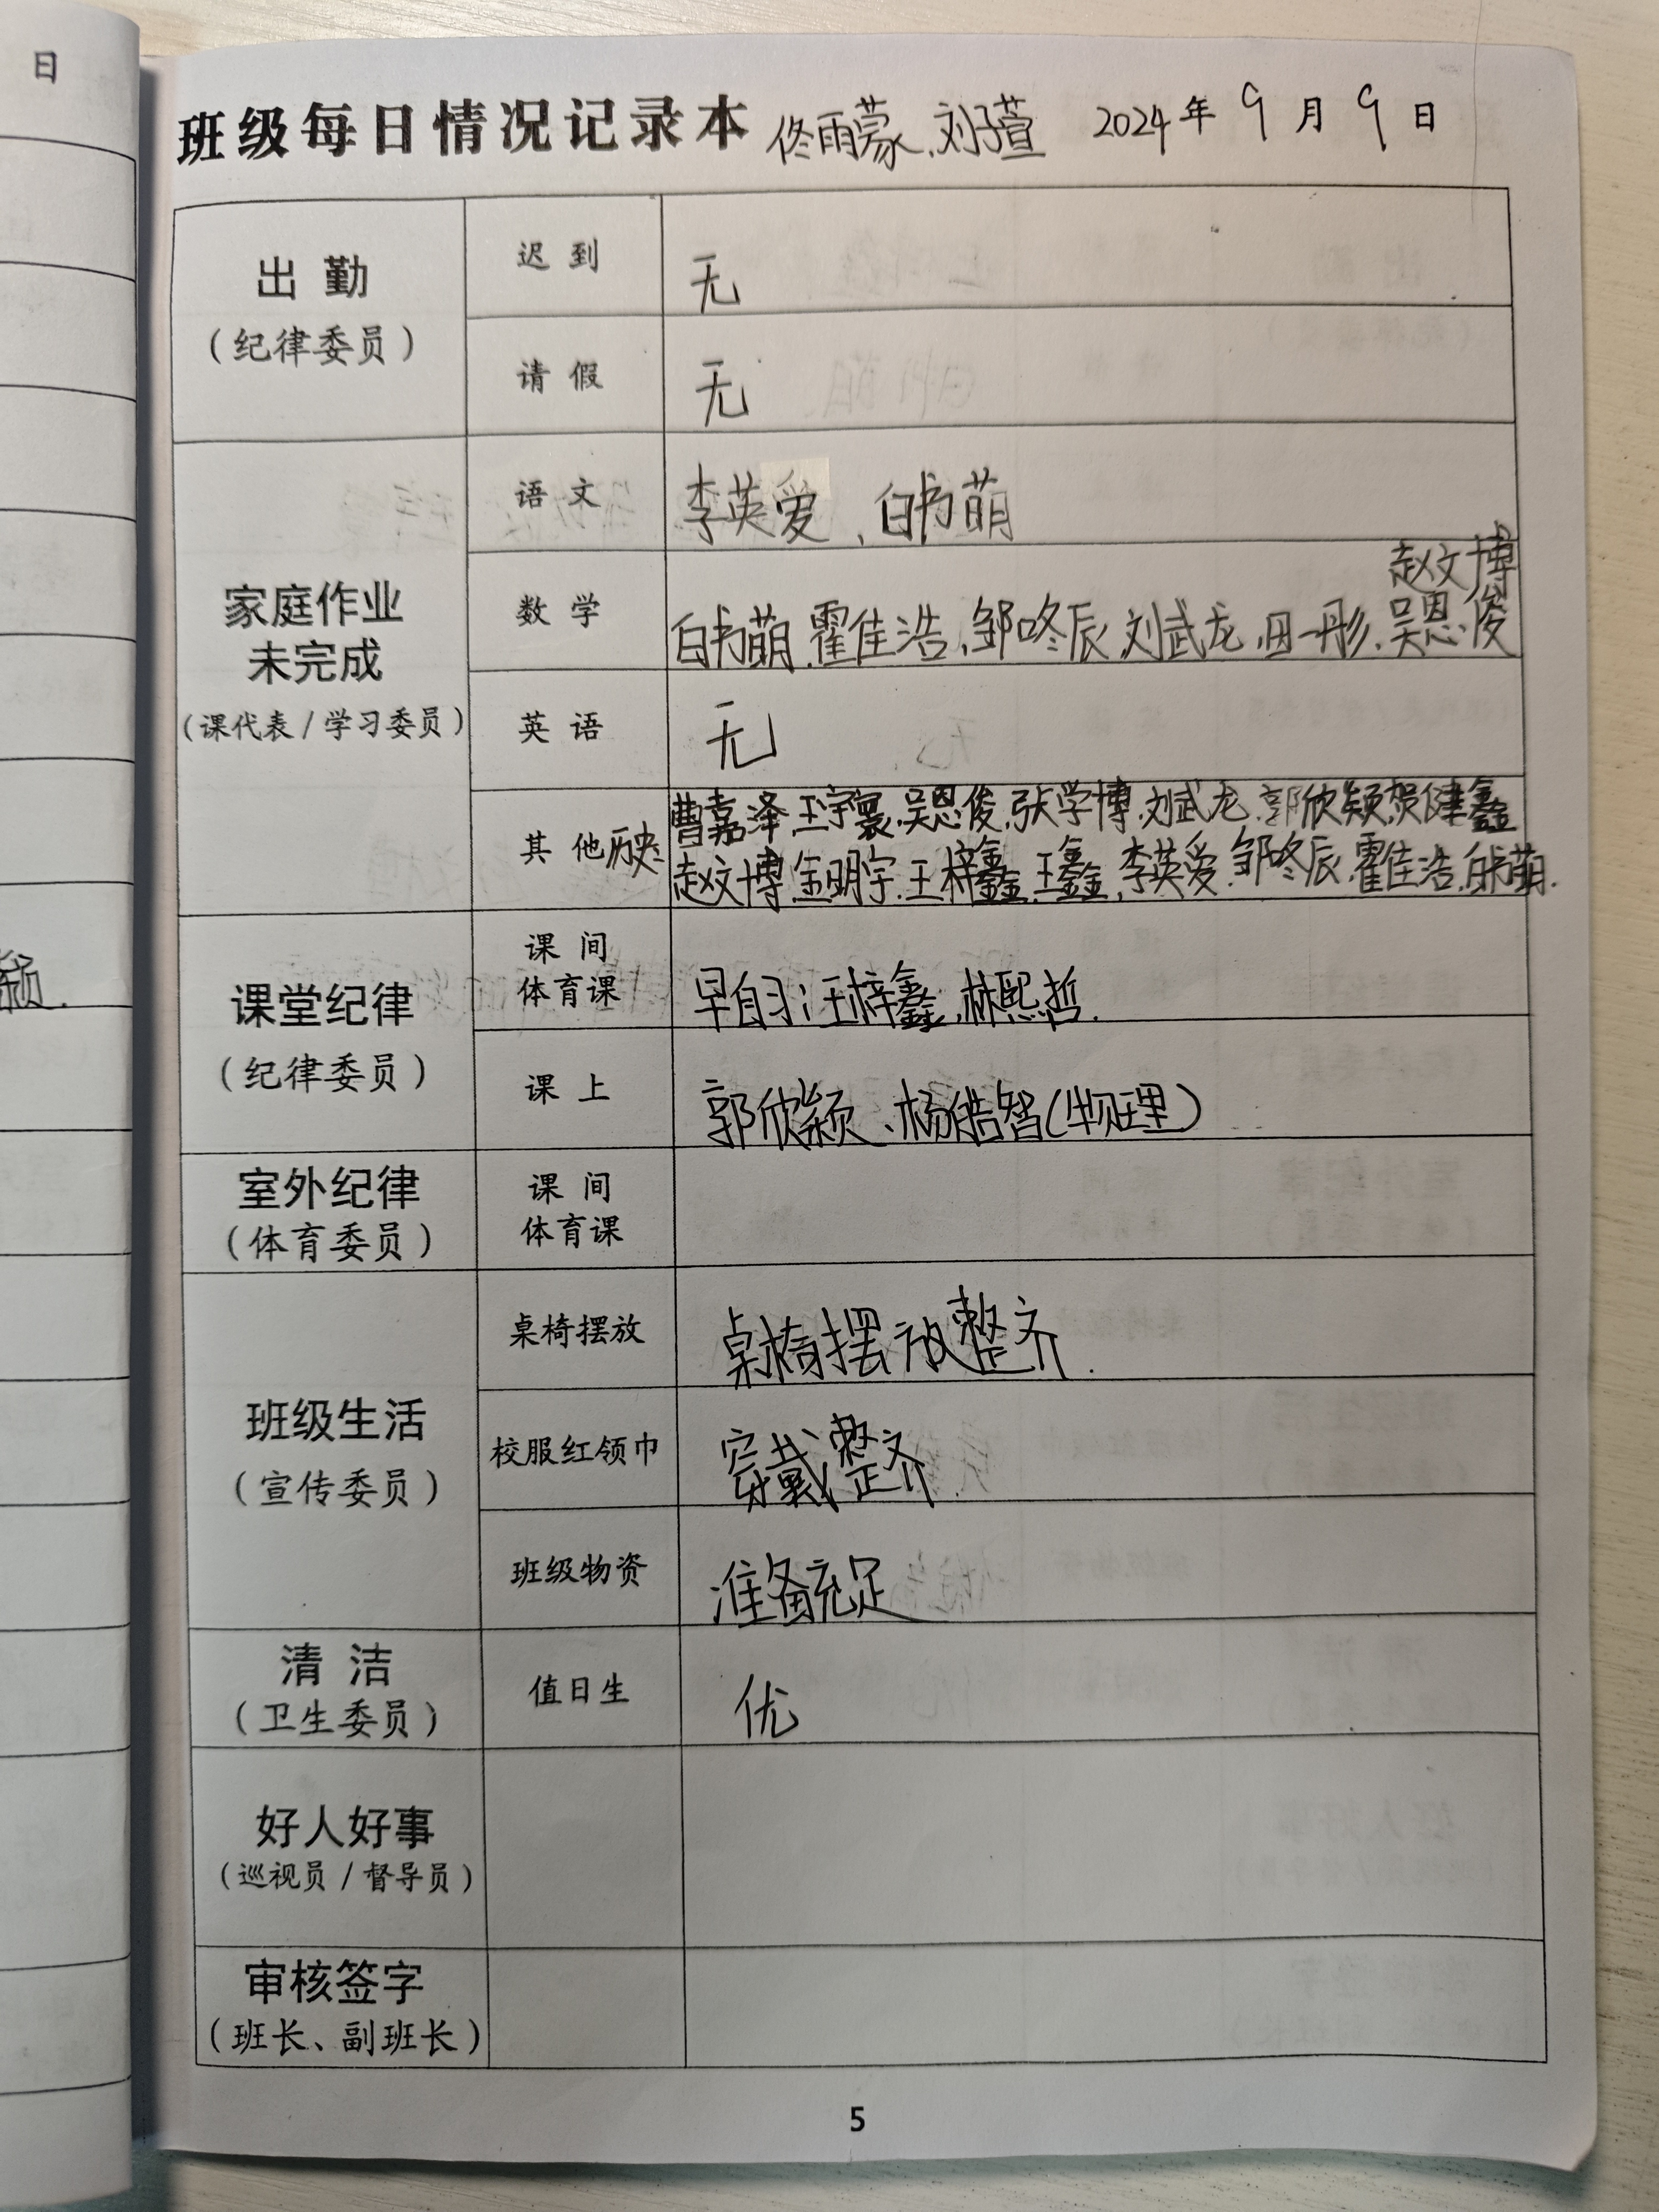 日
班级每日情况记录本 佟雨蒙、刘子萱 2024年 9月 9日
出勤
(纪律委员)
迟到 无
请假 无
家庭作业
未完成
(课代表/学习委员)
语文 李英爱、白书萌
赵文博
数学 白书萌、霍佳浩、邹咚辰、刘武龙、田一彤、吴恩俊
英语 无
其他历史 曹嘉泽、王宇寰、吴恩俊、张学博、刘武龙、郭欣颖、贺健鑫
赵文博、金明宇、王梓鑫、王鑫、李英爱、邹咚辰、霍佳浩、白书萌.
颖.
课堂纪律
(纪律委员)
课间
体育课 早自习:王梓鑫、林熙哲.
课上 郭欣颖、杨皓智(物理)
室外纪律
(体育委员)
课间
体育课
班级生活
(宣传委员)
桌椅摆放 桌椅摆放整齐.
校服红领巾 穿戴整齐.
班级物资 准备充足
清洁
(卫生委员)
值日生 优
好人好事
(巡视员/督导员)
审核签字
(班长、副班长)
5